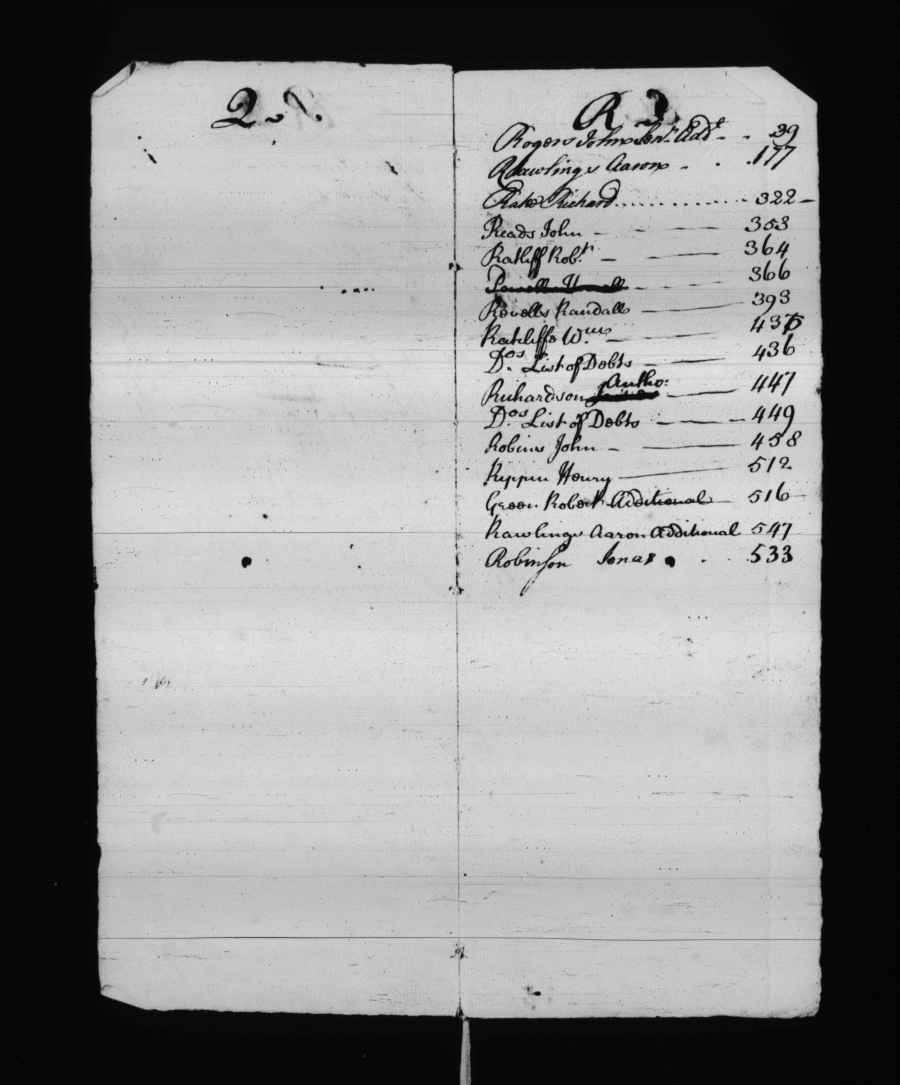 Q
R
Rogers John Senr. Add.t - . 39
Rawlings Aaron - . . 177
Rake Richard .............. 322 -
Reads John - - - 353
Ratliff Rob.t - - 364
- - 366
Revells Randall - - 393
Ratcliffe W.m - - 435
D.os List of Debts - - 436
Richardson Antho: - 447
D.os List of Debts - - 449
Robins John - - 458
Rippin Henry - 512
Green Robert Additional - 516
Rawlings Aaron Additional 547
Robinson Jonas . . 533